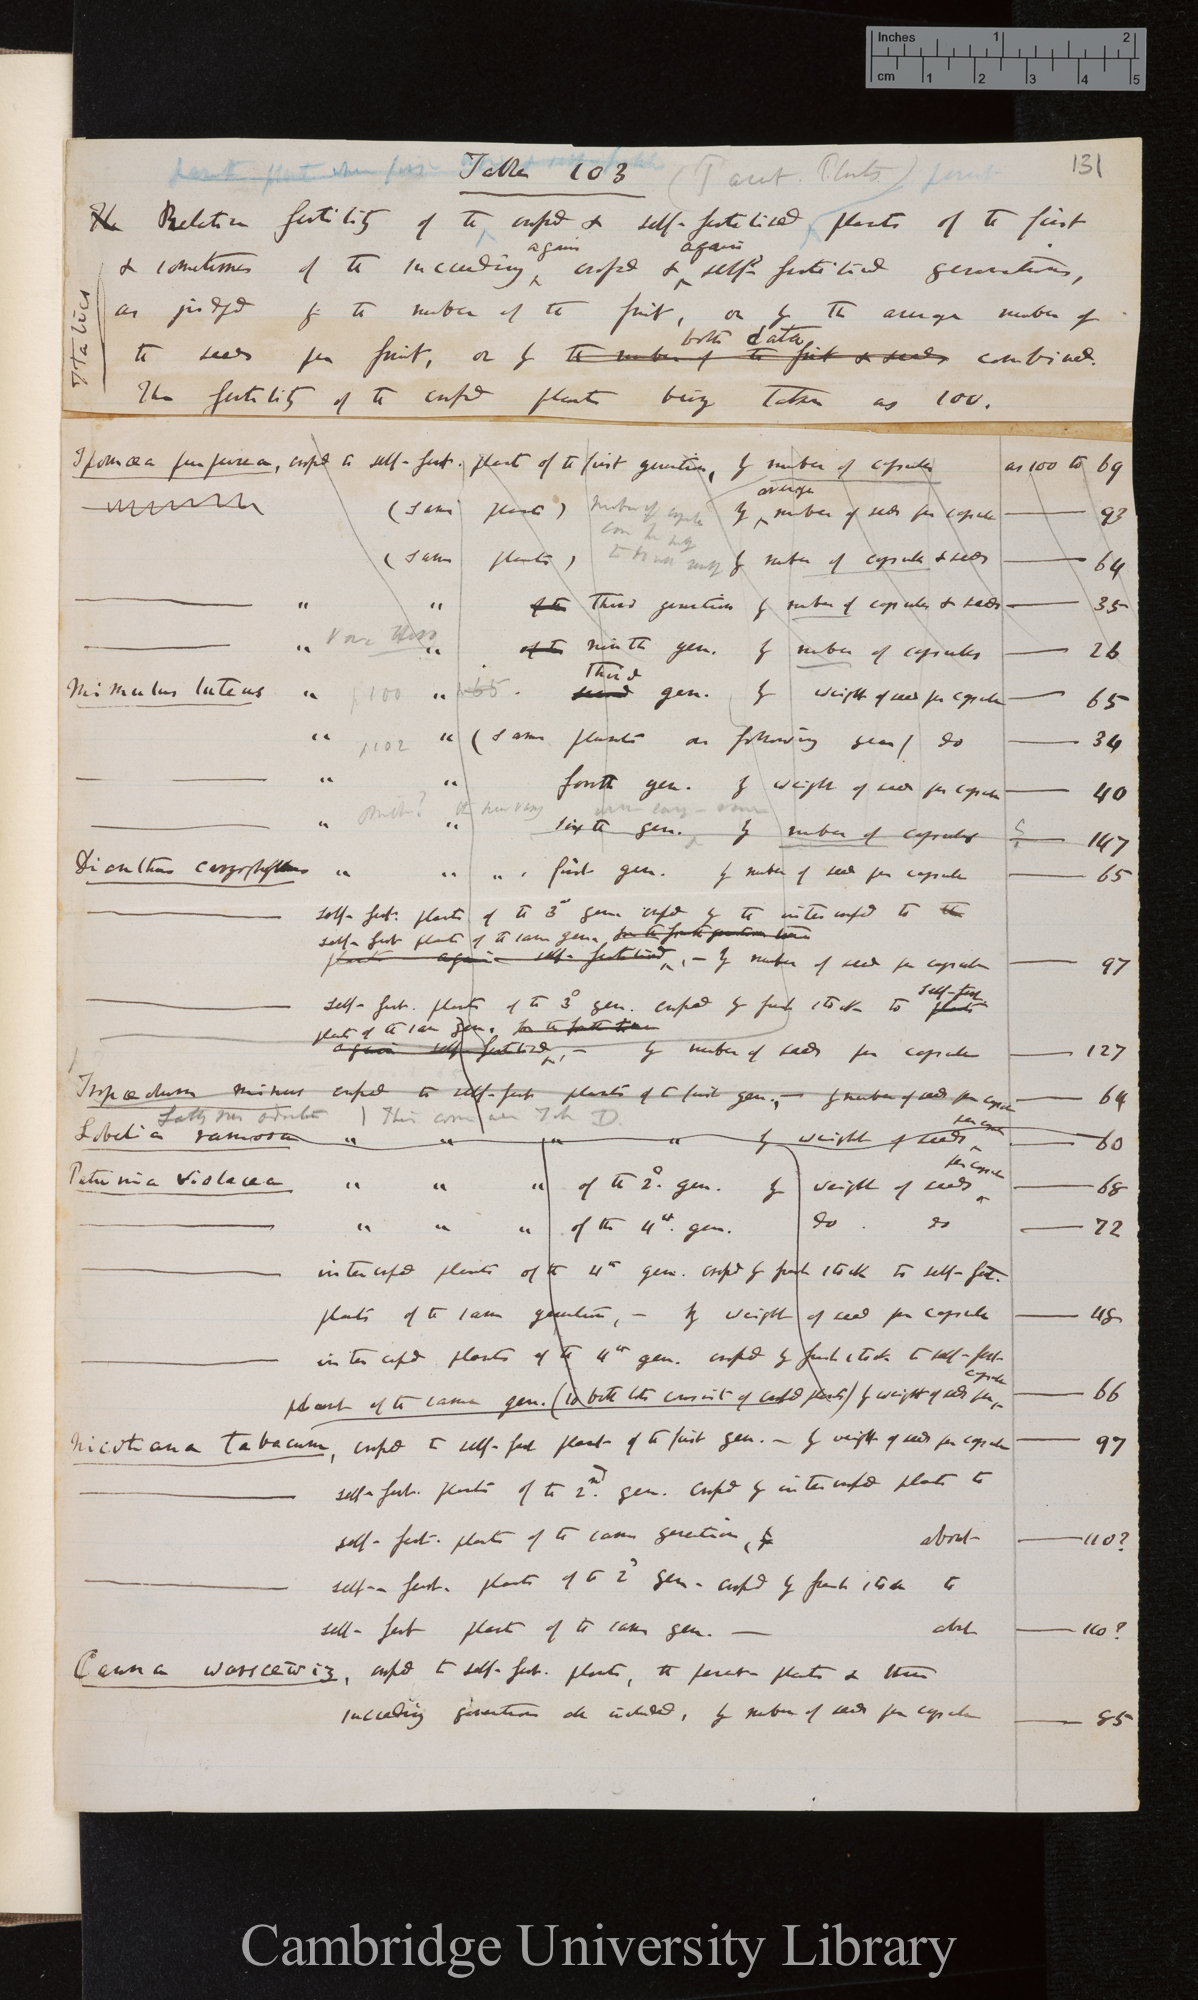 Inches 1 2
cm 1 2 3 4 5
131
Table 103
(Parent Plants) parent
The Relative fertility of the crossed & self-fertilised plants of the first
again again
& sometimes of the succeeding crossed & self-fertilised generations,
as judged by the number of the fruit, or by the average number of
Italics
both data
the seeds per fruit, or by the number of the fruit & seeds combined.
The fertility of the crossed plants being taken as 100.
Ipomœa purpurea, crossed to self-fert. plants of the first generation, by number of capsules as 100 to 69
average
(same plants) by number of seeds per capsule — 93
(same plants) by number of capsules & seeds — 64
" " of the third generation by number of capsules & seeds — 35
" " of the ninth gen. by number of capsules — 26
third
Mimulus luteus " 100 " 65. gen. by weight of seed per capsule — 65
" 102 " (same plants on following year) do — 34
" " fourth gen. by weight of seed per capsule — 40
" " sixth gen. by number of capsules — 147
Dianthus caryophyllus " " " first gen. by number of seed per capsule — 65
self-fert. plants of the 3d gen. crossed by the intercrossed to the
self-fert plants of the same gen.
plants again self-fertilised, — by number of seed per capsule — 97
self-fert.
self-fert. plants of the 3d gen. crossed by fresh stock to plants
plants of the same gen.
again self-fertilised, — by number of seeds per capsule — 127
Tropæolum minus crossed to self-fert plants of the first gen., — by number of seed per capsule — 64
Lathyrus odoratus
per capsule
Lobelia ramosa " " " " by weight of seeds — 60
per capsule
Petunia violacea " " " of the 2d. gen. by weight of seeds — 68
" " " of the 4th. gen. do. do — 72
intercrossed plants of the 4th gen. crossed by fresh stock to self-fert.
plants of the same generation, — by weight of seed per capsule — 48
intercrossed plants of the 4th gen. crossed by fresh stock to self-fert.
capsule
plants of the same gen. (to both lots consist of crossed plants) by weight of seeds per — 66
Nicotiana tabacum, crossed to self-fert plants of the first gen. — by weight of seeds per capsule — 97
self-fert. plants of the 2nd. gen. crossed by intercrossed plants to
self-fert. plants of the same generation, by about — 110?
self-fert. plants of the 2d gen. crossed by fresh stock to
self-fert plants of the same gen. — about — 110?
Canna warscewiz, crossed to self-fert. plants, the parent-plants & three
succeeding generations all included, by number of seeds per capsule — 85
Cambridge University Library